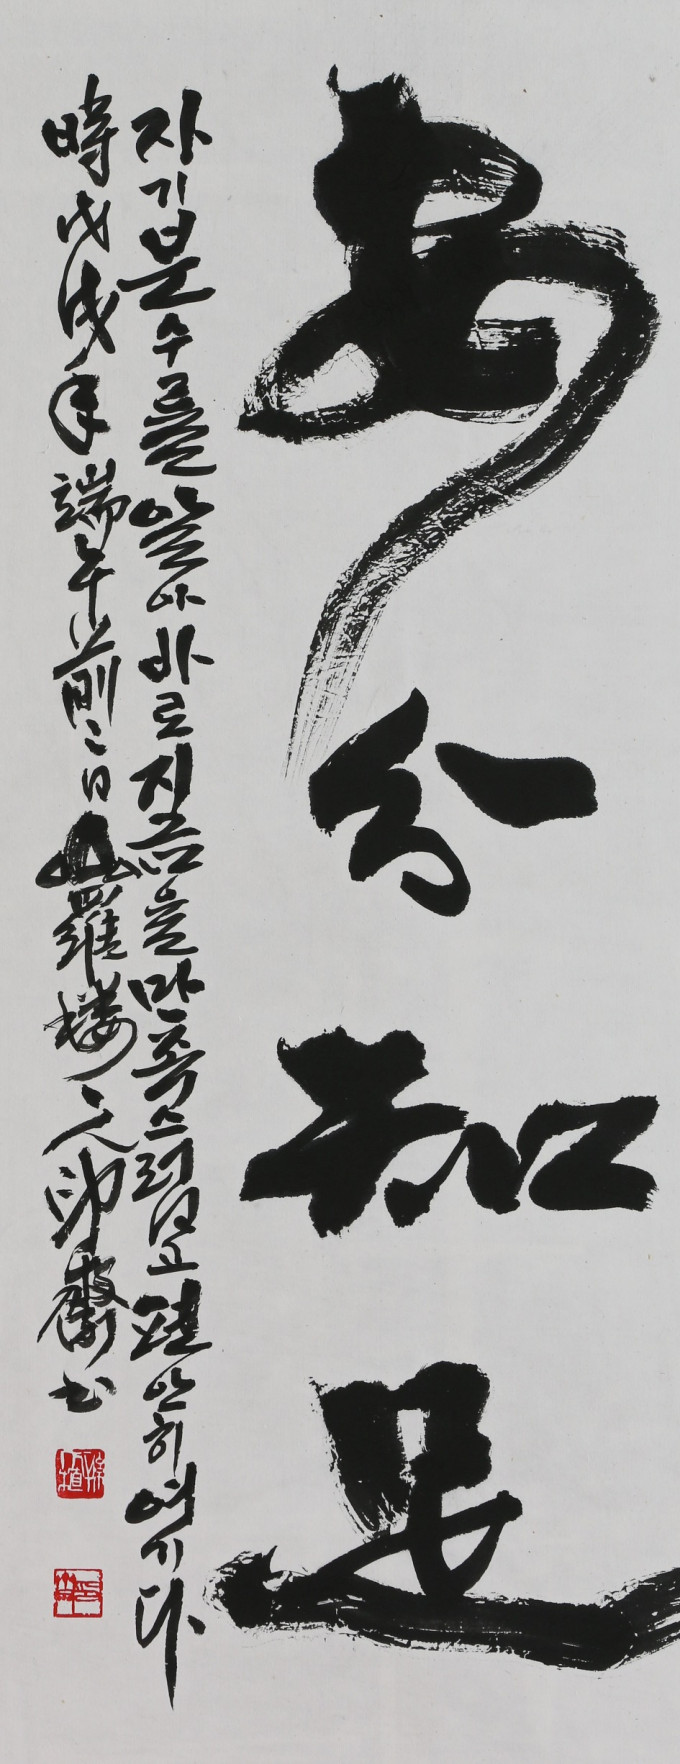 安分知足
자기분수를 알아 바로 지금을 만족스러워하고 편안히 여기다
時戊戌年端午前二日 山羅樓之印 書